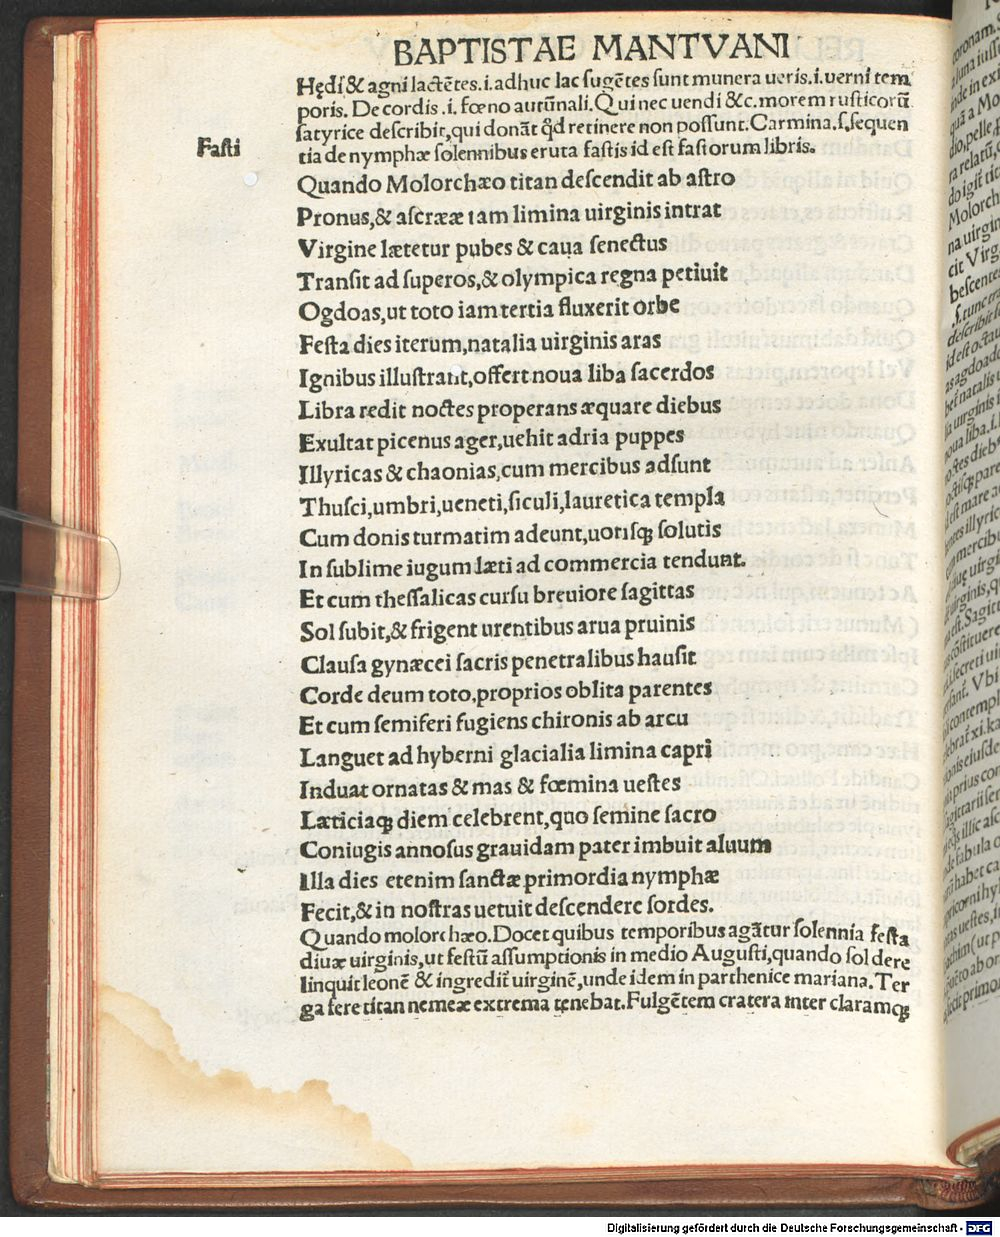 BAPTISTAE MANTVANI
Hędi & agni lactẽtes.i.adhuc lac sugẽtes sunt munera ueris.i.uerni tem
poris. De cordis .i. fœno autũnali. Qui nec uendi &c. morem rusticorũ
satyrice describit, qui donãt qđ retinere non possunt. Carmina.s. sequen
Fasti
tia de nymphæ solennibus eruta fastis id est fastorum libris.
Quando Molorchæo titan descendit ab astro
Pronus,& ascrææ iam limina uirginis intrat
Virgine lætetur pubes & caua senectus
Transit ad superos,& olympica regna petiuit
Ogdoas,ut toto iam tertia fluxerit orbe
Festa dies iterum,natalia uirginis aras
Ignibus illustrant,offert noua liba sacerdos
Libra redit noctes properans æquare diebus
Exultat picenus ager,uehit adria puppes
Illyricas & chaonias,cum mercibus adsunt
Thusci,umbri,ueneti,siculi,lauretica templa
Cum donis turmatim adeunt,uotisq; solutis
In sublime iugum læti ad commercia tendunt.
Et cum thessalicas cursu breuiore sagittas
Sol subit,& frigent urentibus arua pruinis
Clausa gynæcei sacris penetralibus hausit
Corde deum toto,proprios oblita parentes
Et cum semiferi fugiens chironis ab arcu
Languet ad hyberni glacialia limina capri
Induat ornatas & mas & fœmina uestes
Læticiaq; diem celebrent,quo semine sacro
Coniugis annosus grauidam pater imbuit aluum
Illa dies etenim sanctæ primordia nymphæ
Fecit,& in nostras uetuit descendere sordes.
Quando molorchæo. Docet quibus temporibus agãtur solennia festa
diuæ uirginis,ut festũ assumptionis in medio Augusti,quando sol dere
linquit leonẽ & ingredit̃ uirginẽ,unde idem in parthenice mariana. Ter
ga fere titan nemeæ extrema tenebat. Fulgẽtem cratera inter claramq;
Digitalisierung gefördert durch die Deutsche Forschungsgemeinschaft - DFG